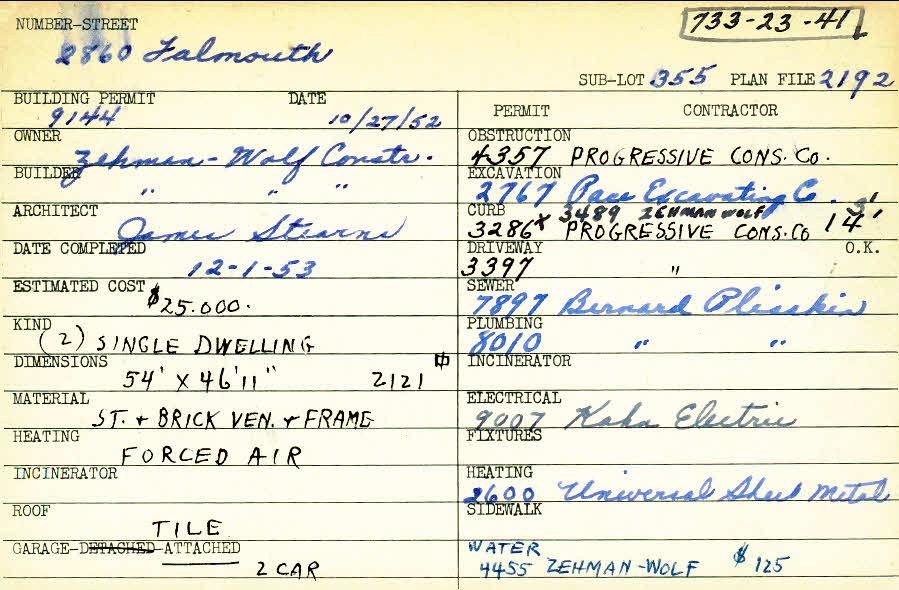 733-23-41
NUMBER-STREET
2860 Falmouth
SUB-LOT 355 PLAN FILE 2192
BUILDING PERMIT DATE
9144 10/27/52
OWNER
Zehman-Wolf Constr.
BUILDER
" " "
ARCHITECT
James Stearns
DATE COMPLETED
12-1-53
ESTIMATED COST
$25.000.
KIND
(2) SINGLE DWELLING
DIMENSIONS
54' X 46'11" 2121
MATERIAL
ST. + BRICK VEN. + FRAME
HEATING
FORCED AIR
INCINERATOR
ROOF
TILE
GARAGE-DETACHED-ATTACHED
2 CAR
PERMIT CONTRACTOR
OBSTRUCTION
4357 PROGRESSIVE CONS. CO.
EXCAVATION
2767 Pace Excavating Co.
CURB 3489 ZEHMAN WOLF 3'
3286 X PROGRESSIVE CONS. CO 14'
DRIVEWAY O.K.
3397 "
SEWER
7897 Bernard Plisskin
PLUMBING
8010 " "
INCINERATOR
ELECTRICAL
9007 Kahn Electric
FIXTURES
HEATING
2600 Universal Sheet Metal
SIDEWALK
WATER
4455 ZEHMAN-WOLF $125